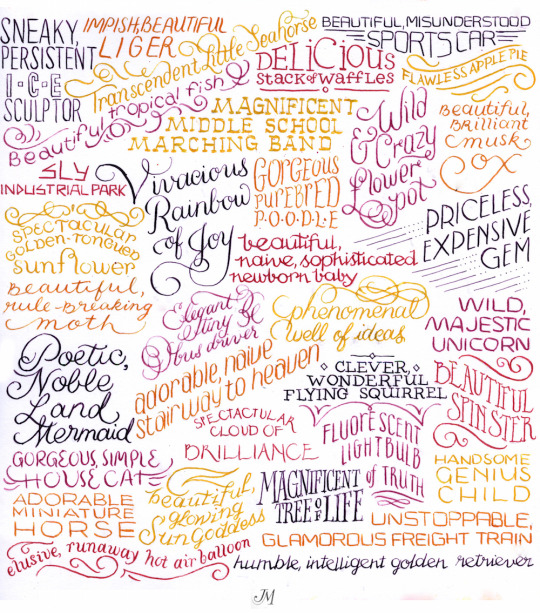 SNEAKY,
PERSISTENT
I·C·E
SCULPTOR
IMPISH, BEAUTIFUL
LIGER
Transcendent Little Seahorse
BEAUTIFUL, MISUNDERSTOOD
SPORTS CAR
DELICIOUS
STACK of WAFFLES
FLAWLESS APPLE PIE
Beautiful tropical fish
MAGNIFICENT
MIDDLE SCHOOL
MARCHING BAND
Wild
& Crazy
Flower
pot
Beautiful,
BRilliant
musk
OX
SLY
INDUSTRIAL PARK
Vivacious
Rainbow
of Joy
GORGEOUS
PUREBRED
P·O·O·D·L·E
PRICELESS,
EXPENSIVE
GEM
SPECTACULAR
GOLDEN-TONGUED
sunflower
beautiful,
naive, sophisticated
newborn baby
Beautiful,
rule-breaking
moth
Elegant
tiny
bus driver
phenomenal
well of ideas
WILD,
MAJESTIC
UNICORN
Poetic,
Noble
Land
Mermaid
adorable, naive
stairway to heaven
CLEVER,
WONDERFUL
FLYING SQUIRREL
BEAUTIFUL
SPINSTER
SPECTACULAR
CLOUD OF
BRILLIANCE
FLUORESCENT
LIGHTBULB
of TRUTH
GORGEOUS, SIMPLE
HOUSE CAT
HANDSOME
GENIUS
CHILD
ADORABLE
MINIATURE
HORSE
beautiful,
glowing
Sun Goddess
MAGNIFICENT
TREE OF LIFE
UNSTOPPABLE,
GLAMOROUS FREIGHT TRAIN
elusive, runaway hot air balloon
humble, intelligent golden retriever
JM